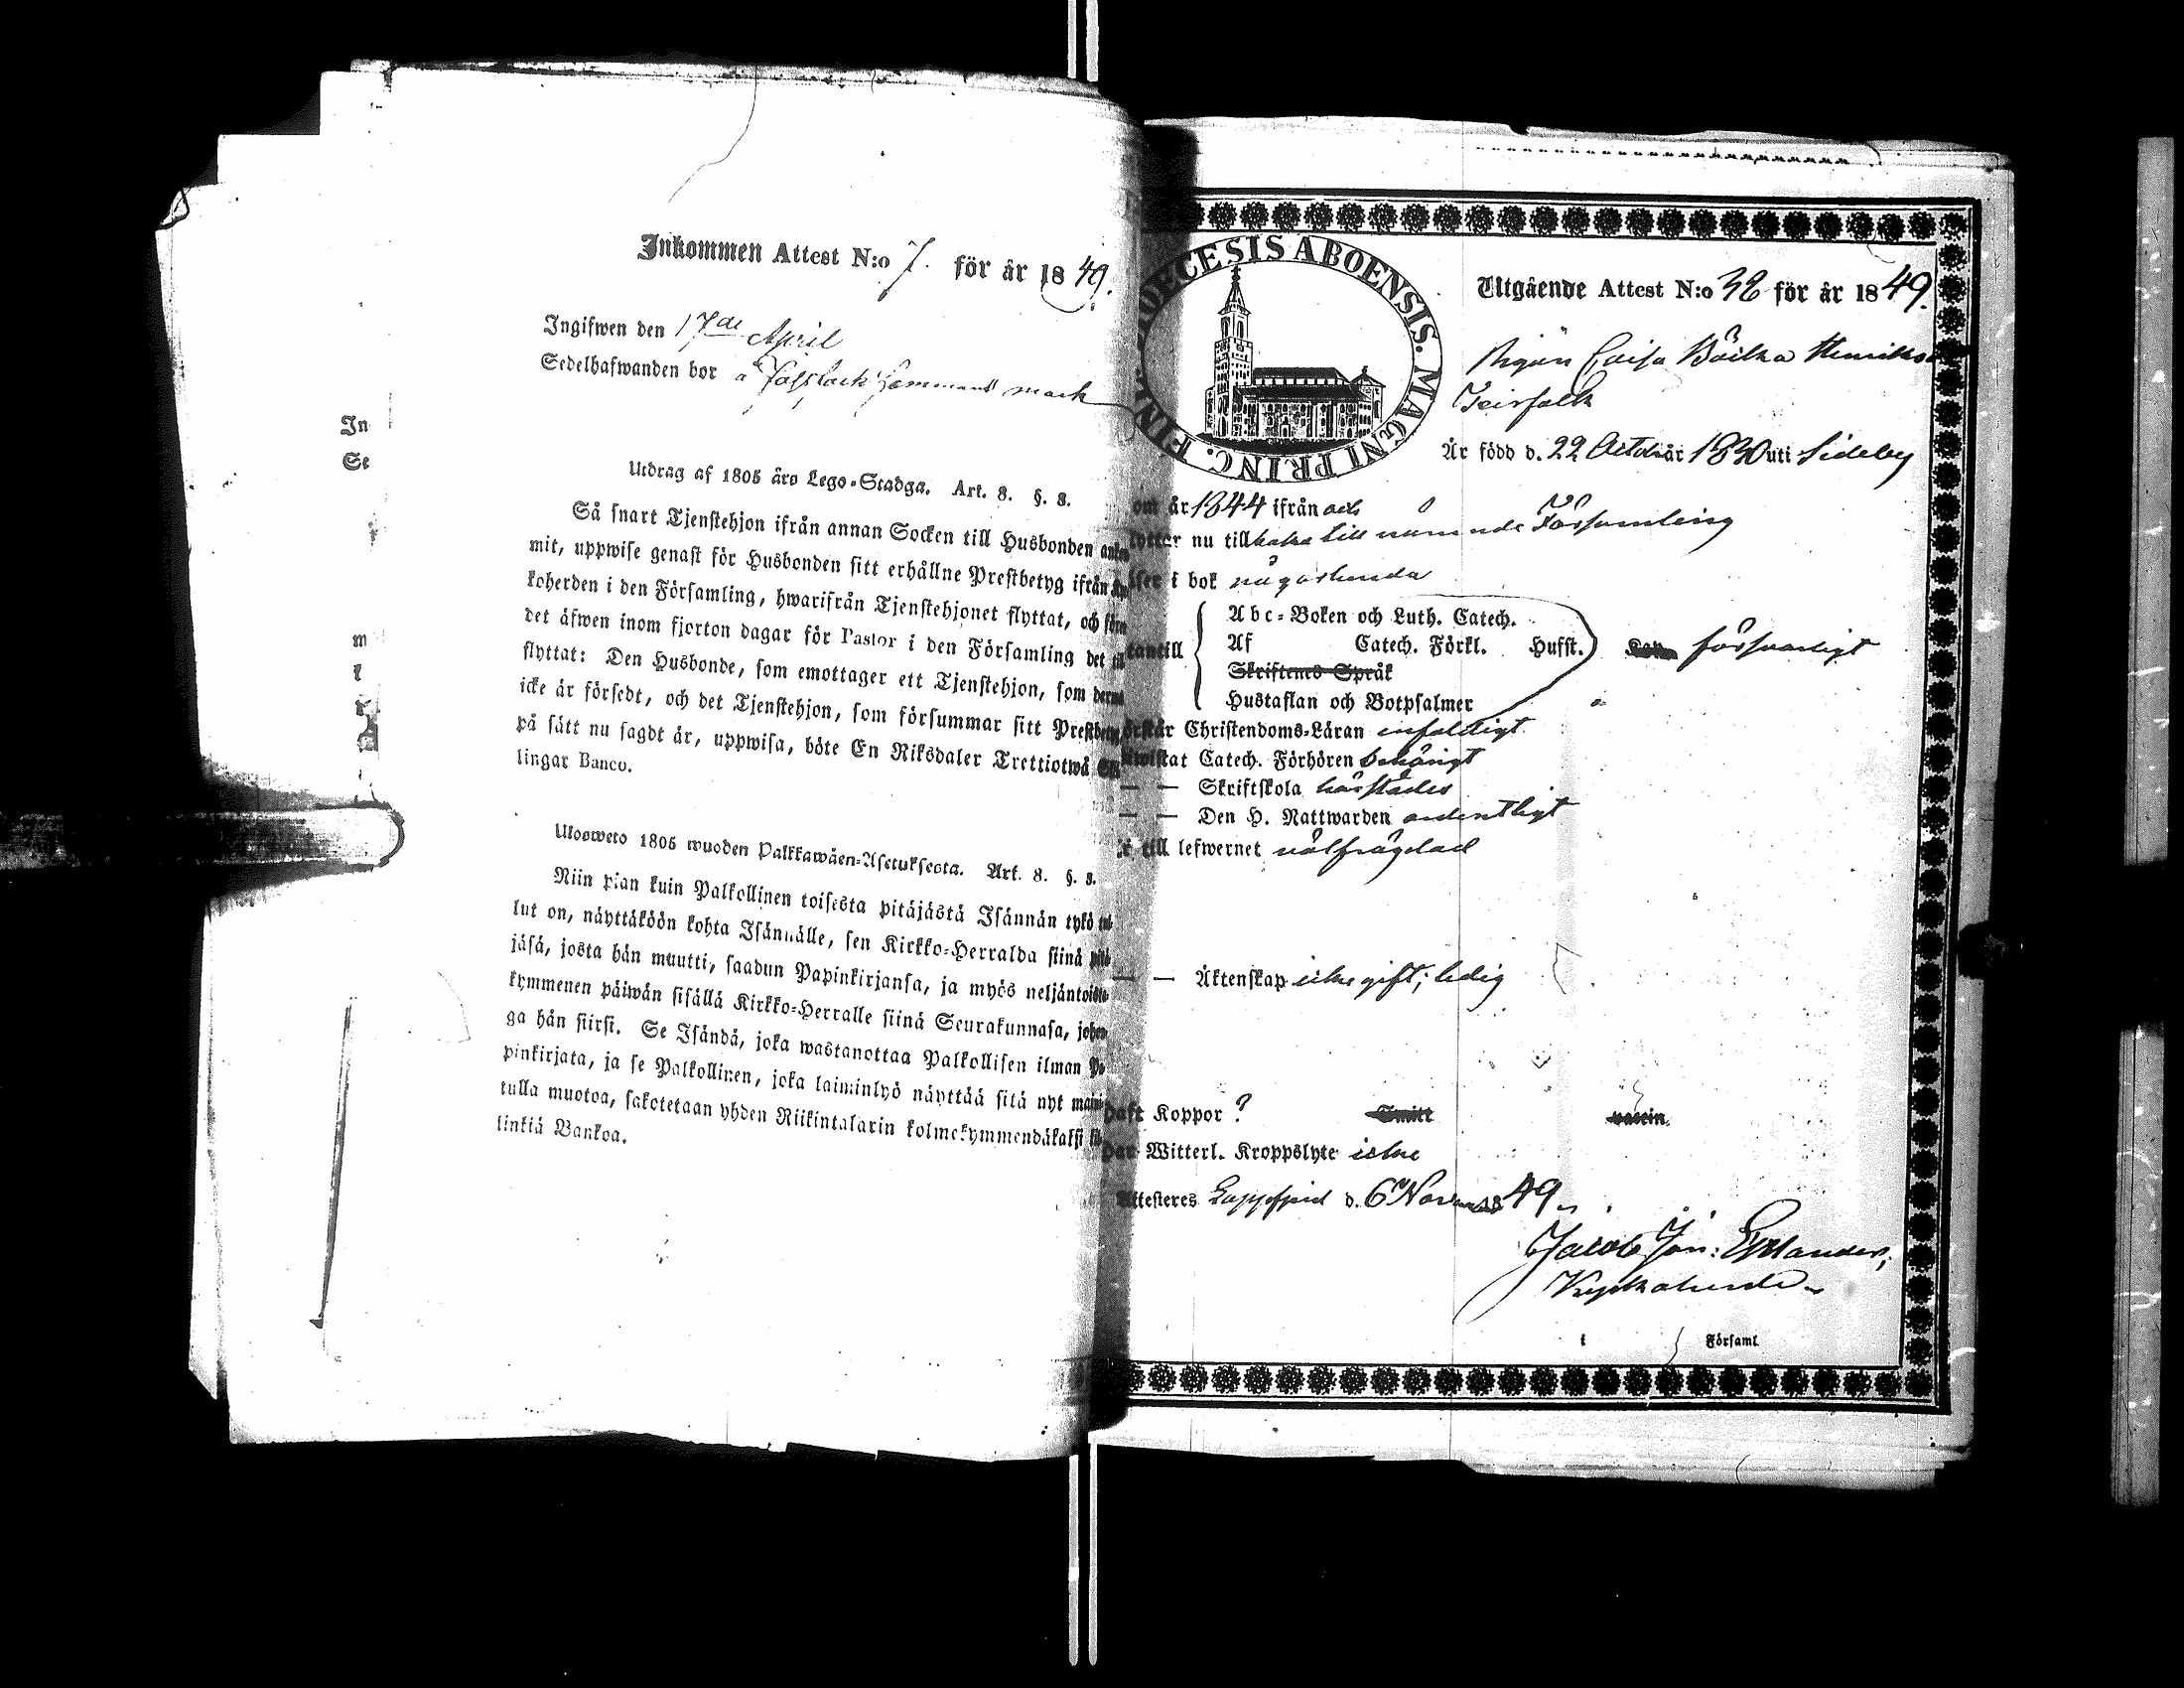 Inkommen Attest N:o 7. för år 1849.
Ingifwen den 17de April
Sedelhafwanden bor å mark
In
Se
m
k
Utdrag af 1805 års Lego-Stadga. Art. 8. §. 8.
Så snart Tjenstehjon ifrån annan Socken till Husbonden
mit, uppwise genast för Husbonden sitt erhållne Prestbetyg ifrån
koherden i den Församling, hwarifrån Tjenstehjonet flyttat, och
det äfwen inom fjorton dagar för Pastor i den Församling det
flyttat: Den Husbonde, som emottager ett Tjenstehjon, som
icke är försedt, och det Tjenstehjon, som försummar sitt
på sätt nu sagdt är, uppwisa, böte En Riksdaler Trettiotwå
lingar Banco.
Ulosweto 1805 wuoden Palkkawäen-Asetuksesta. Art. 8. §. 8.
Niin pian kuin Palkollinen toisesta pitäjästä Isännän tykö
lut on, näyttäköön kohta Isännälle, sen Kirkko-Herralda siinä
jäsä, josta hän muutti, saadun Papinkirjansa, ja myös
kymmenen päiwän sisällä Kirkko-Herralle siinä Seurakunnasa,
ga hän siirsi. Se Isändä, joka wastanottaa Palkollisen ilman
pinkirjata, ja se Palkollinen, joka laiminlyö näyttää sitä nyt
tulla muotoa, sakotetaan yhden Riikintalarin kolmekymmendäkaksi
linkiä Bankoa.
DIOECESIS ABOENSIS. MAGNI PRINC. FINL.
Utgående Attest N:o 32 för år 1849.
Pigan Caisa Henriksd
Är född d. 22 Octobr år 1830 uti Sideby
om år 1844 ifrån
flyttar nu tillbaka till nämnde Församling
läser i bok någorlunda
utantill
Abc-Boken och Luth. Catech.
Af Catech. Förkl. Husst. försvarligt
Skriftenes Språk
Hustaflan och Botpsalmer
förstår Christendoms-Läran enfaldigt
bewistat Catech. Förhören behörigt
— — Skriftskola härstädes
— — Den H. Nattwarden ordentligt
är till lefwernet välfrägdad
— — Äktenskap icke gift; ledig
haft Koppor ? Smitt vaccin.
har Witterl. Kroppslyte icke
Attesteras Lappfjerd d. 6 November 1849
Jacob Joh:
Kyrkoherde
i Församl.